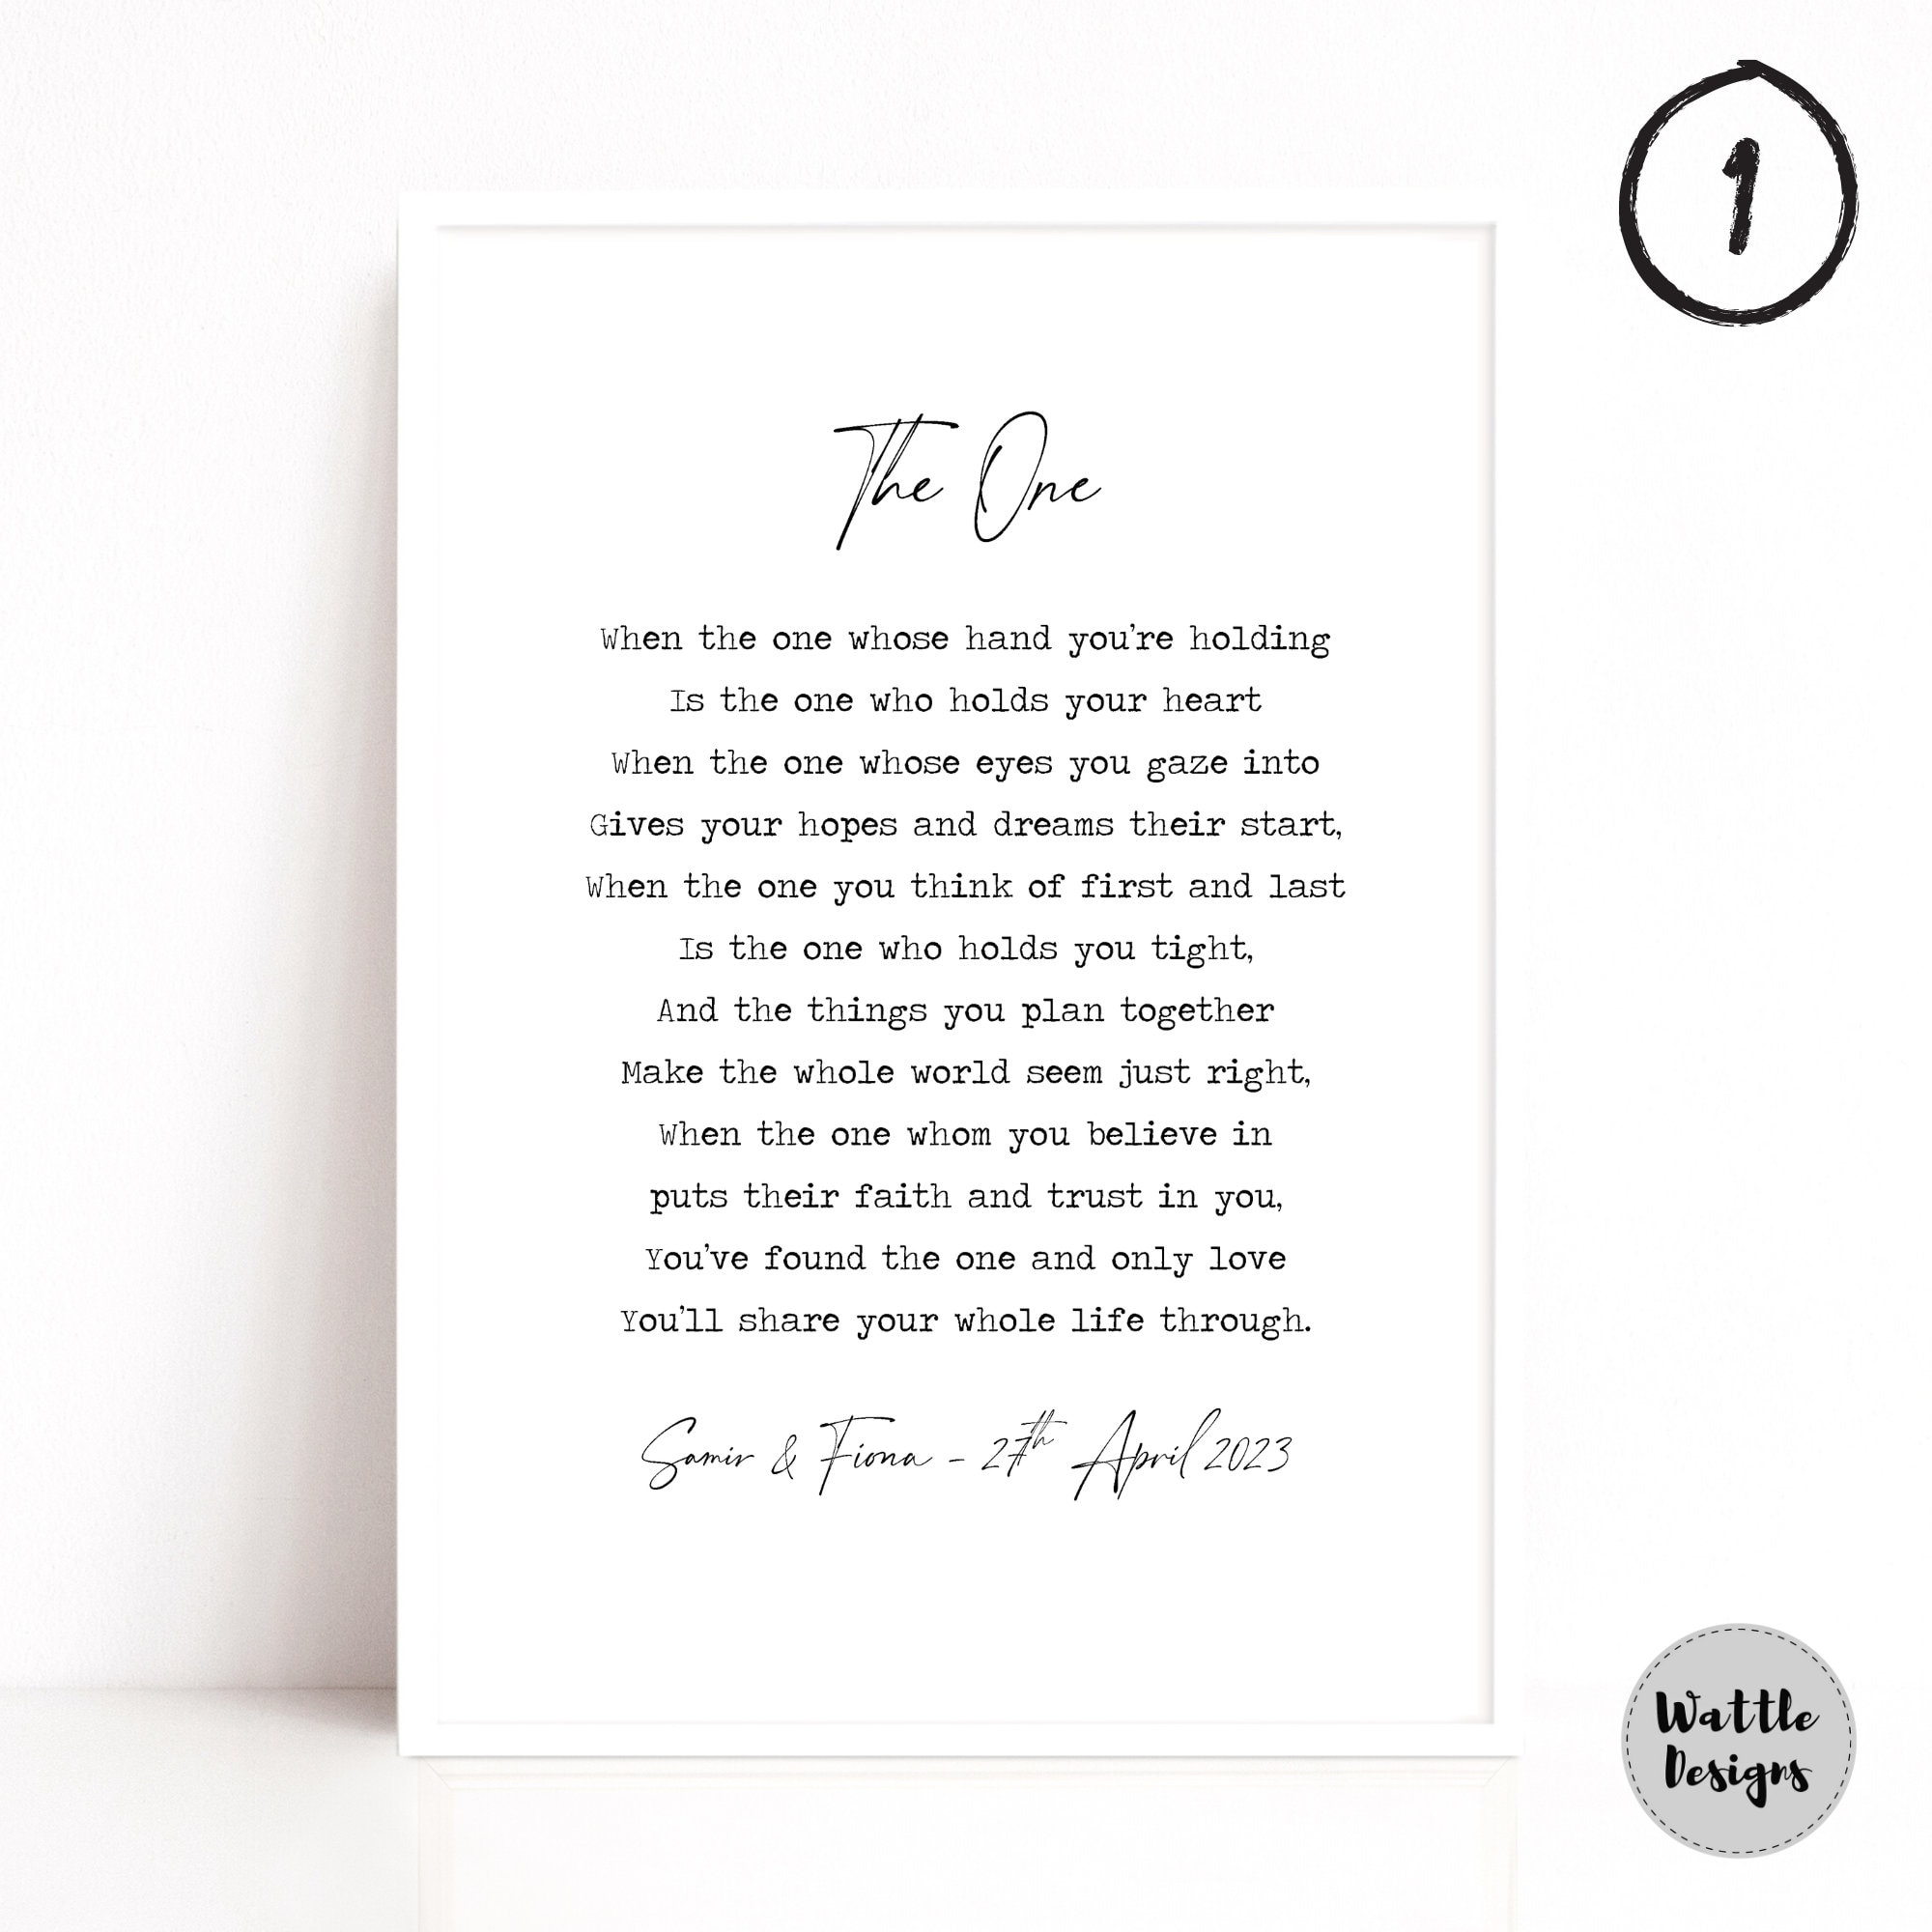 1
The One
When the one whose hand you're holding
Is the one who holds your heart
When the one whose eyes you gaze into
Gives your hopes and dreams their start,
When the one you think of first and last
Is the one who holds you tight,
And the things you plan together
Make the whole world seem just right,
When the one whom you believe in
puts their faith and trust in you,
You've found the one and only love
You'll share your whole life through.
Samir & Fiona - 27th April 2023
Wattle
Designs